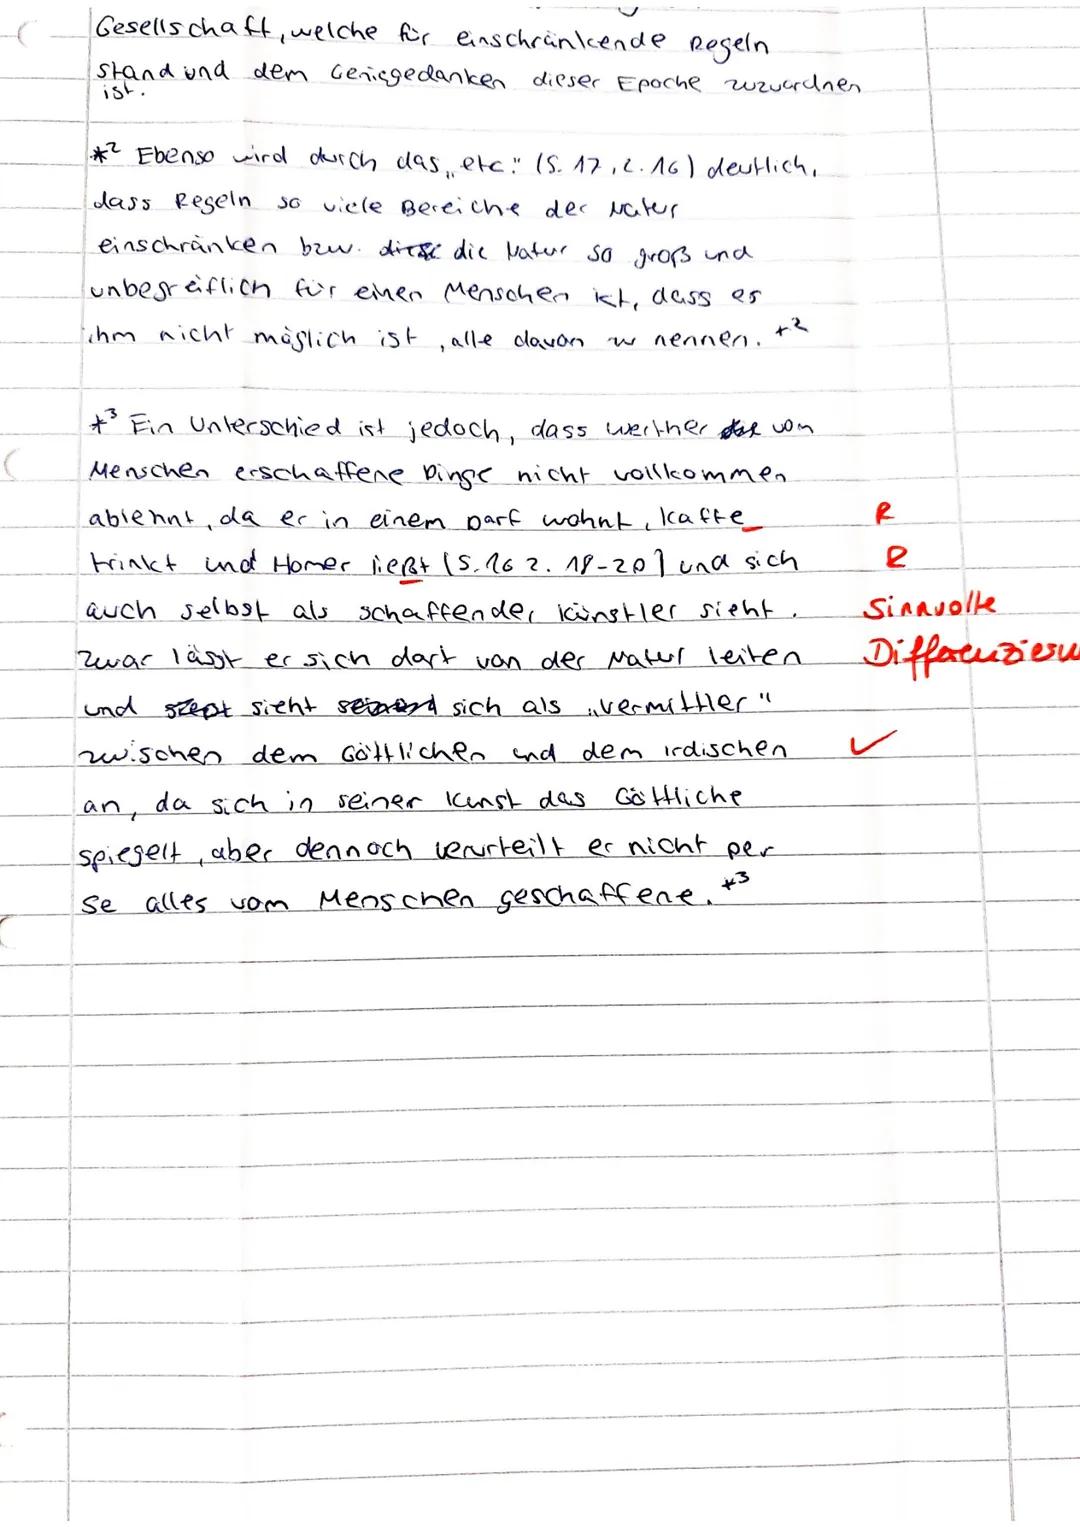 Gesellschaft, welche für einschränkende Regeln
stand und dem Geniegedanken dieser Epoche zuzuordnen
ist.
*² Ebenso wird durch das „etc." (S. 17, Z. 16) deutlich,
dass Regeln so viele Bereiche der Natur
einschränken bzw. die Natur so groß und
unbegreiflich für einen Menschen ist, dass es
ihm nicht möglich ist, alle davon zu nennen. *²
*³ Ein Unterschied ist jedoch, dass Werther von
Menschen erschaffene Dinge nicht vollkommen
ablehnt, da er in einem Dorf wohnt, Kaffe R
trinkt und Homer ließt (S. 16 Z. 18-20) und sich R
auch selbst als schaffender Künstler sieht. Sinnvolle
Zwar lässt er sich dort von der Natur leiten Differenzieru
und sieht sich als „Vermittler"
zwischen dem Göttlichen und dem irdischen ✓
an, da sich in seiner Kunst das Göttliche
spiegelt, aber dennoch verurteilt er nicht per
se alles vom Menschen geschaffene. *³